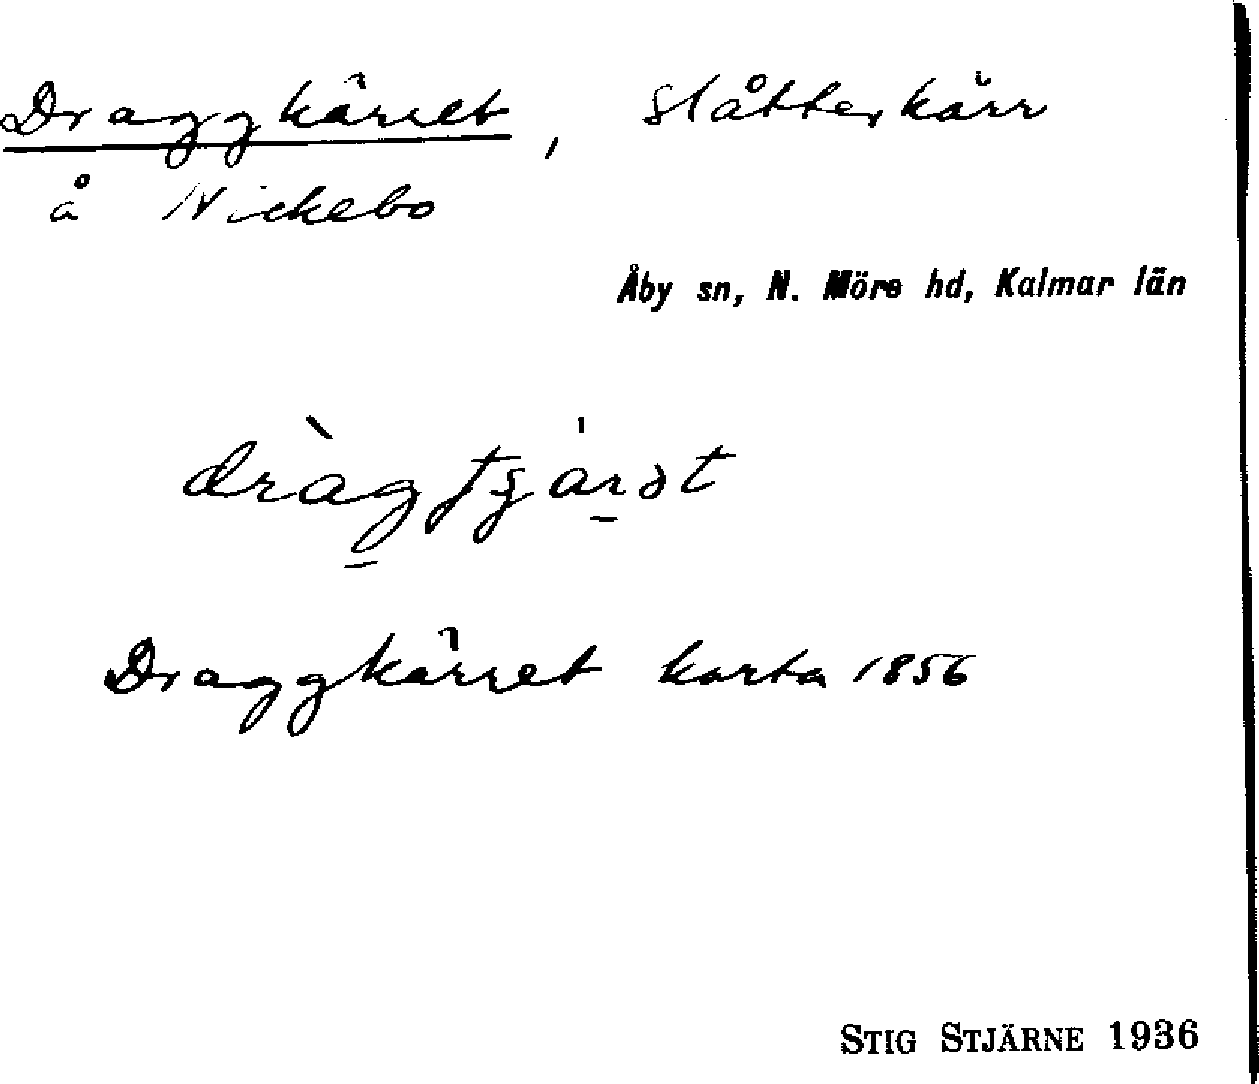 Draggkärret, slåtterkärr
å Nickebo
Åby sn, N. Möre hd, Kalmar län
Draggkärret karta 1856
STIG STJÄRNE 1936